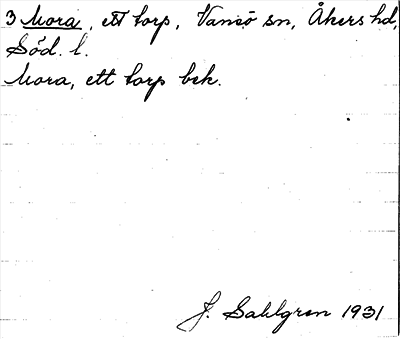 3 Mora, ett torp, Vansö sn, Åkers hd,
Söd. l.
Mora, ett torp bek.
J. Sahlgren 1931